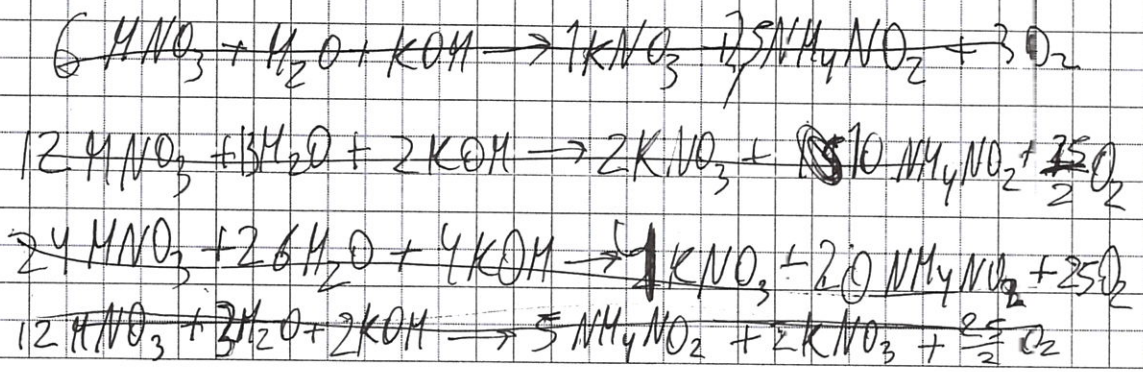 6 HNO₃ + H₂O + KOH → 1KNO₃ + 2,5NH₄NO₂ + 3O₂
12 HNO₃ + 13H₂O + 2KOH → 2KNO₃ + 10 NH₄NO₂ + 25/2 O₂
24 HNO₃ + 26H₂O + 4KOH → 4KNO₃ + 20 NH₄NO₂ + 25O₂
12 HNO₃ + 3H₂O + 2KOH → 5 NH₄NO₂ + 2KNO₃ + 25/2 O₂